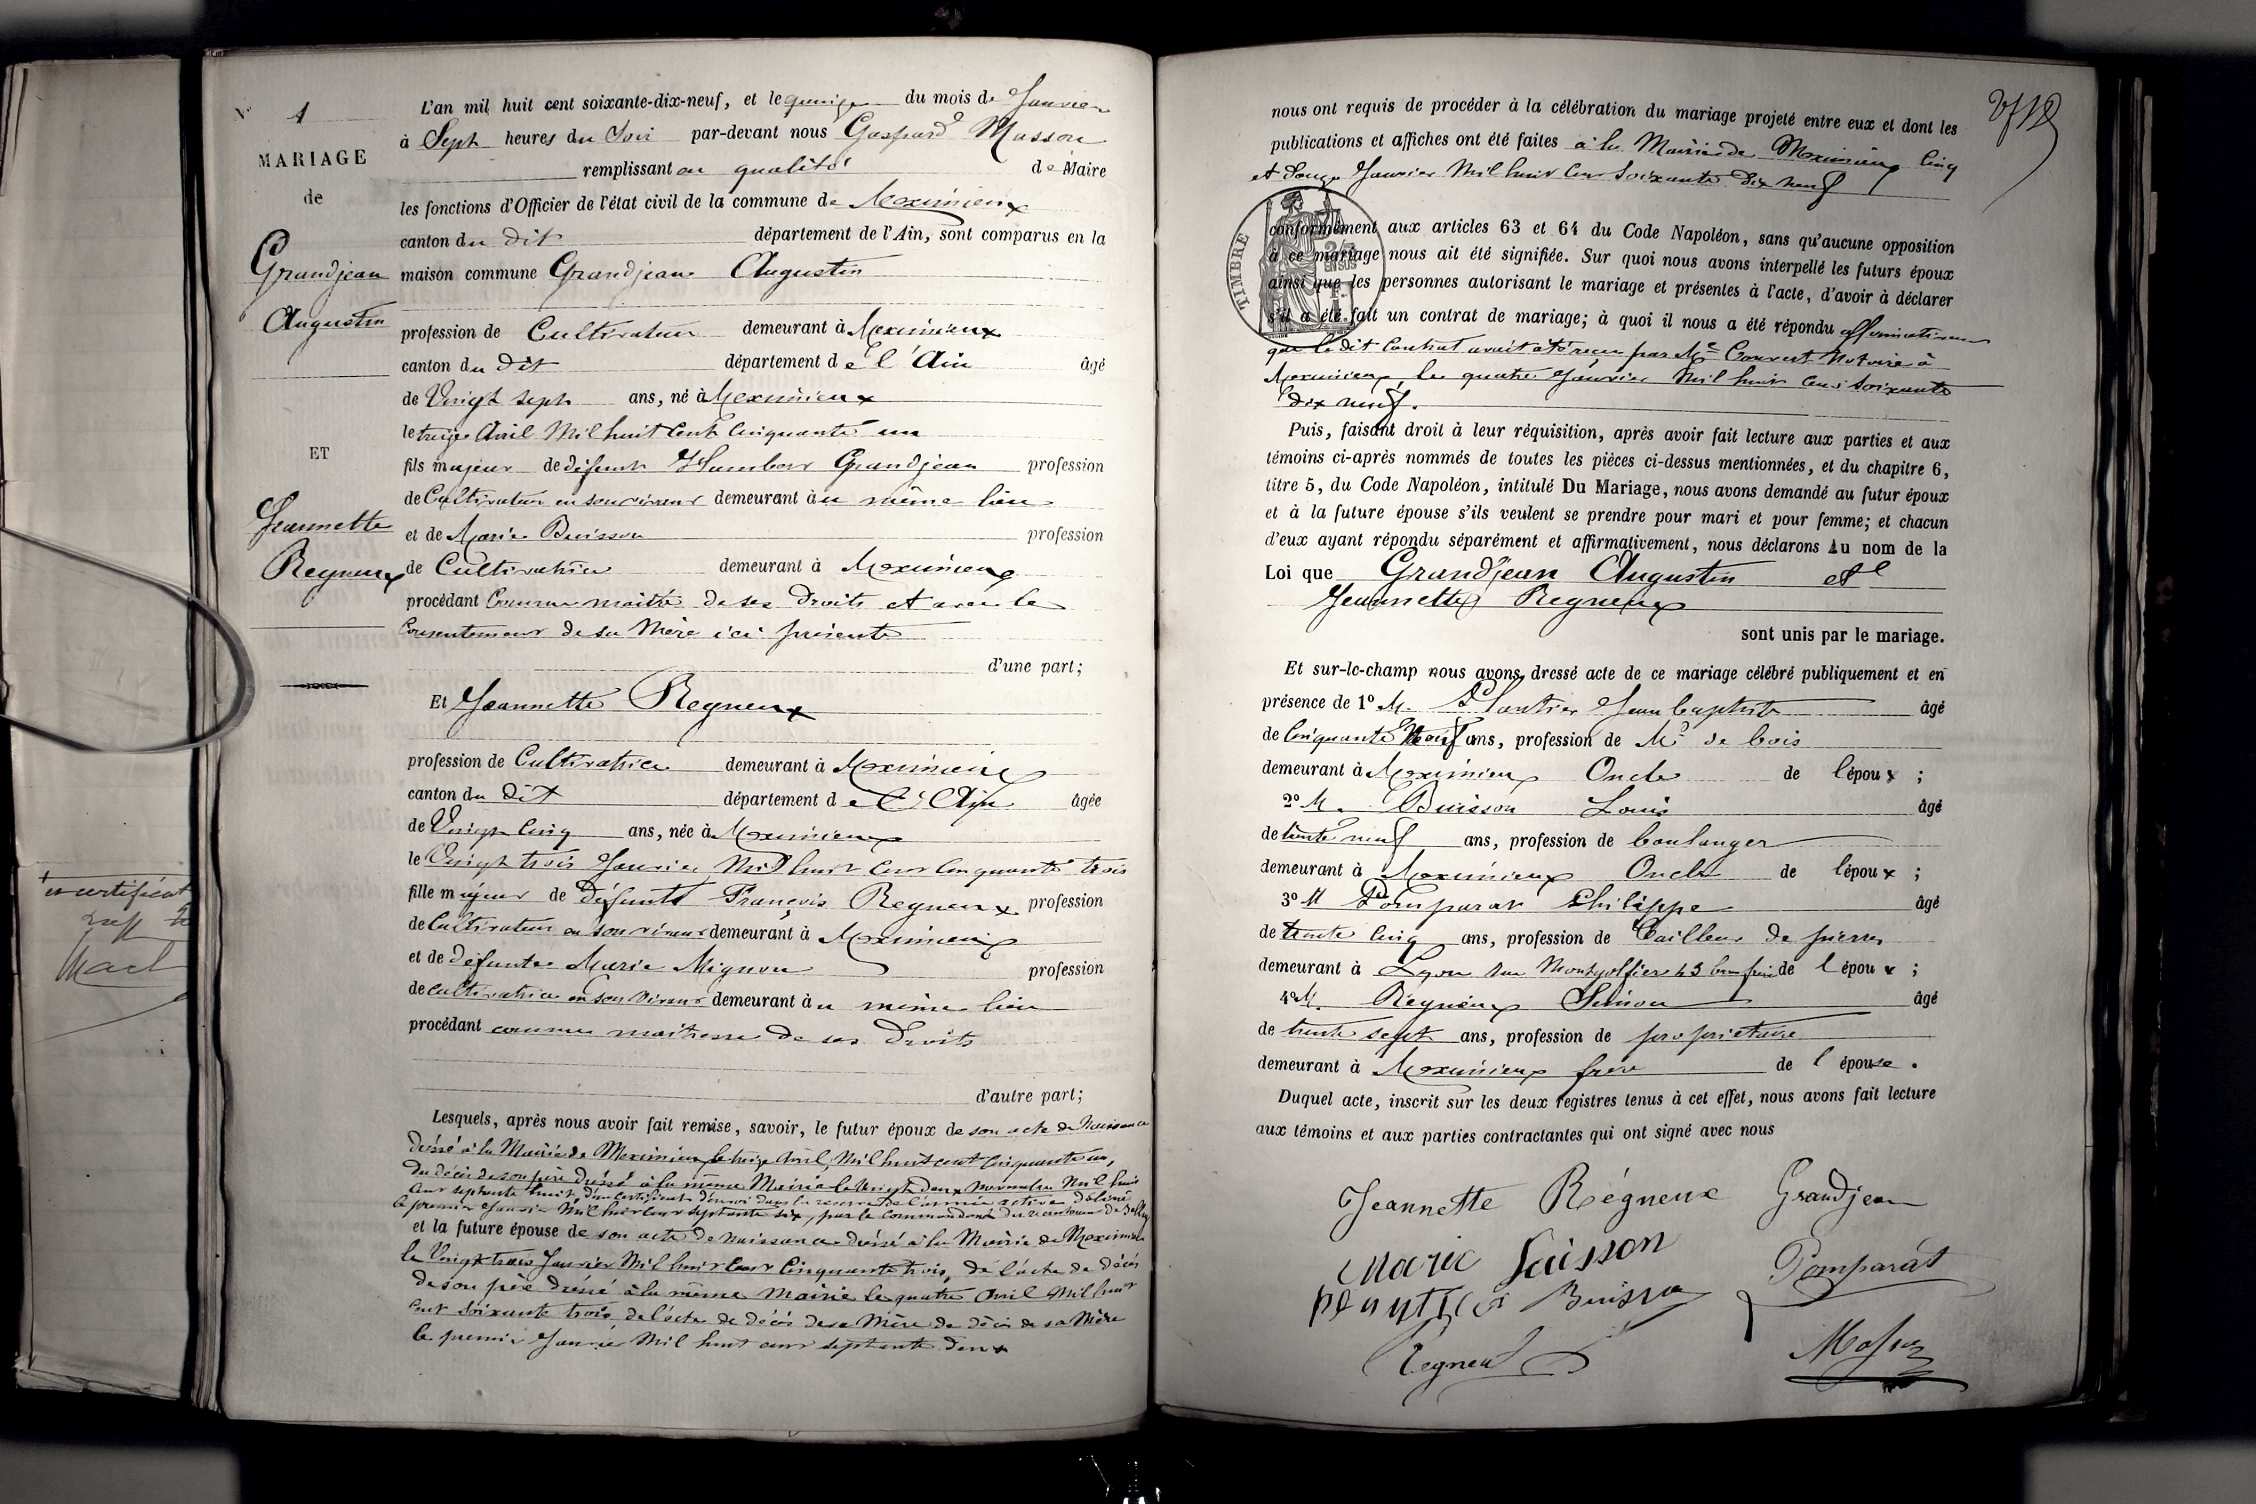 N° 1
MARIAGE
de
Grandjean
Augustin
ET
Jeannette
Regneux
L'an mil huit cent soixante-dix-neuf, et le quinze du mois de Janvier
à Sept heures du Soir par-devant nous Gaspard Masson
remplissant en qualité de Maire
les fonctions d'Officier de l'état civil de la commune de Meximieux
canton du dit département de l'Ain, sont comparus en la
maison commune Grandjean Augustin
profession de Cultivateur demeurant à Meximieux
canton du dit département de l'Ain âgé
de Vingt sept ans, né à Meximieux
le treize Avril Mil huit Cent Cinquante un
fils majeur de défunt Humbert Grandjean profession
de Cultivateur en son vivant demeurant au même lieu
et de Marie Buisson profession
de Cultivatrice demeurant à Meximieux
procédant Comme maître de ses Droits et avec le
Consentement de sa Mère ici présente
d'une part;
Et Jeannette Regneux
profession de Cultivatrice demeurant à Meximieux
canton du dit département de l'Ain âgée
de Vingt Cinq ans, née à Meximieux
le Vingt trois Janvier Mil huit cent Cinquante trois
fille majeur de défunt François Regneux profession
de Cultivateur en son vivant demeurant à Meximieux
et de défunte Marie Mignon profession
de cultivatrice en son vivant demeurant au même lieu
procédant comme maitresse de ses Droits
d'autre part;
Lesquels, après nous avoir fait remise, savoir, le futur époux de son acte de Naissance
dréssé à la Mairie de Meximieux le treize Avril Mil huit cent Cinquante un,
du décès de son père dréssé à la même Mairie le Vingt deux Novembre Mil huit
Cent septante huit, d'un certificat d'envoi dans la reserve de l'armée active délivré
le premier Janvier Mil huit Cent septante six, par le Commandant du recrutement de Belley
et la future épouse de son acte de naissance dréssé à la Mairie de Meximieux
le Vingt trois Janvier Mil huit Cent Cinquante trois, de l'acte de décès
de son père dréssé à la même Mairie le quatre Avril Mil huit
Cent Soixante trois de l'acte de décès de sa Mère de décès de sa Mère
le premier Janvier Mil huit cent septante deux
nous ont requis de procéder à la célébration du mariage projeté entre eux et dont les
publications et affiches ont été faites à la Mairie de Meximieux Cinq
et Douze Janvier Mil huit Cent Soixante Dix neuf
TIMBRE
conformément aux articles 63 et 64 du Code Napoléon, sans qu'aucune opposition
à ce mariage nous ait été signifiée. Sur quoi nous avons interpellé les futurs époux
ainsi que les personnes autorisant le mariage et présentes à l'acte, d'avoir à déclarer
s'il a été fait un contrat de mariage; à quoi il nous a été répondu
que le dit Contrat avait été reçu par Me Convert Notaire à
Meximieux le quatre Janvier Mil huit Cent Soixante
Dix neuf.
Puis, faisant droit à leur réquisition, après avoir fait lecture aux parties et aux
témoins ci-après nommés de toutes les pièces ci-dessus mentionnées, et du chapitre 6,
titre 5, du Code Napoléon, intitulé Du Mariage, nous avons demandé au futur époux
et à la future épouse s'ils veulent se prendre pour mari et pour femme; et chacun
d'eux ayant répondu séparément et affirmativement, nous déclarons Au nom de la
Loi que Grandjean Augustin et
Jeannette Regneux
sont unis par le mariage.
Et sur-le-champ nous avons dressé acte de ce mariage célébré publiquement et en
présence de 1° M. Plantier Jean baptiste âgé
de Cinquante Neuf ans, profession de Md de bois
demeurant à Meximieux Oncle de l'époux;
2° M. Buisson Louis âgé
de trente neuf ans, profession de boulanger
demeurant à Meximieux Oncle de l'époux;
3° M Pomparat Philippe âgé
de trente Cinq ans, profession de Tailleur de pierres
demeurant à Lyon rue Montgolfier 43 beau frère de l'époux;
4° M. Regneux Simon âgé
de trente sept ans, profession de propriétaire
demeurant à Meximieux frère de l'épouse.
Duquel acte, inscrit sur les deux registres tenus à cet effet, nous avons fait lecture
aux témoins et aux parties contractantes qui ont signé avec nous
Jeannette Régneux Grandjean
Marie Buisson Pomparat
plantier Buisson
Regneux Masson